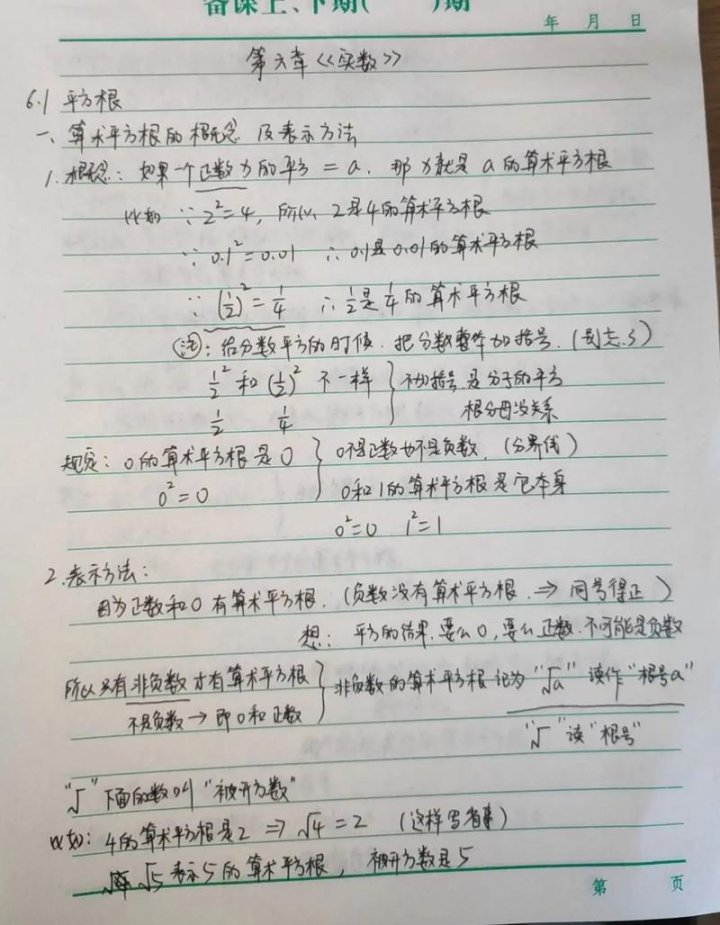 备课上、下期( )期
年 月 日
第六章《实数》
6.1 平方根
一、算术平方根的概念 及表示方法
1.概念：如果一个正数x的平方=a，那x就是a的算术平方根
比如 ∵2²=4，所以，2是4的算术平方根
∵0.1²=0.01 ∴0.1是0.01的算术平方根
∵(1/2)²=1/4 ∴1/2是1/4的算术平方根
注：给分数平方的时候，把分数整体加括号.(别忘了)
1²/2 和 (1/2)² 不一样 } 不加括号是分子的平方
1/2 1/4 跟分母没关系
规定：0的算术平方根是0 } 0不是正数也不是负数.(分界线)
0²=0 0和1的算术平方根是它本身
0²=0 1²=1
2.表示方法：
因为正数和0有算术平方根.(负数没有算术平方根.⇒同号得正)
想：平方的结果.要么0,要么正数.不可能是负数
所以只有非负数才有算术平方根 } 非负数的算术平方根记为"√a" 读作"根号a"
不是负数→即0和正数
"√"读"根号"
"√"下面的数叫"被开方数"
比如：4的算术平方根是2 ⇒ √4=2 (这样写省事)
√5表示5的算术平方根，被开方数是5
第 页